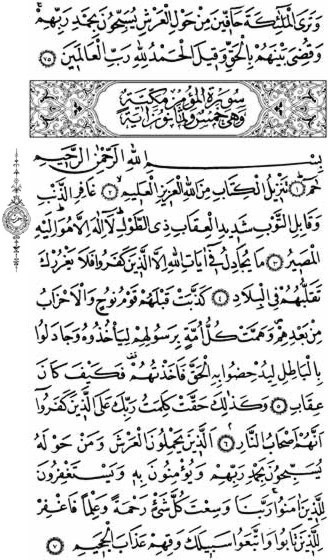 وَتَرَى الْمَلٰٓئِكَةَ حَٓافّ۪ينَ مِنْ حَوْلِ الْعَرْشِ يُسَبِّحُونَ بِحَمْدِ رَبِّهِمْۚ
وَقُضِيَ بَيْنَهُمْ بِالْحَقِّ وَق۪يلَ الْحَمْدُ لِلّٰهِ رَبِّ الْعَالَم۪ينَ ﴿٧٥﴾
سُورَةُ الْمُؤْمِنِ مَكِّيَّةٌ
وَهِيَ خَمْسٌ وَثَمَانُونَ اٰيَةً
بِسْمِ اللّٰهِ الرَّحْمٰنِ الرَّح۪يمِ
حٰمٓۜ ﴿١﴾ تَنْز۪يلُ الْكِتَابِ مِنَ اللّٰهِ الْعَز۪يزِ الْعَل۪يمِۙ ﴿٢﴾ غَافِرِ الذَّنْبِ
وَقَابِلِ التَّوْبِ شَد۪يدِ الْعِقَابِ ذِي الطَّوْلِۜ لَٓا اِلٰهَ اِلَّا هُوَۜ اِلَيْهِ
الْمَص۪يرُ ﴿٣﴾ مَا يُجَادِلُ ف۪ٓي اٰيَاتِ اللّٰهِ اِلَّا الَّذ۪ينَ كَفَرُوا فَلَا يَغْرُرْكَ
تَقَلُّبُهُمْ فِي الْبِلَادِ ﴿٤﴾ كَذَّبَتْ قَبْلَهُمْ قَوْمُ نُوحٍ وَالْاَحْزَابُ
مِنْ بَعْدِهِمْۖ وَهَمَّتْ كُلُّ اُمَّةٍ بِرَسُولِهِمْ لِيَأْخُذُوهُ وَجَادَلُوا
بِالْبَاطِلِ لِيُدْحِضُوا بِهِ الْحَقَّ فَاَخَذْتُهُمْ۠ فَكَيْفَ كَانَ
عِقَابِ ﴿٥﴾ وَكَذٰلِكَ حَقَّتْ كَلِمَتُ رَبِّكَ عَلَى الَّذ۪ينَ كَفَرُٓوا
اَنَّهُمْ اَصْحَابُ النَّارِۢ ﴿٦﴾ اَلَّذ۪ينَ يَحْمِلُونَ الْعَرْشَ وَمَنْ حَوْلَهُ
يُسَبِّحُونَ بِحَمْدِ رَبِّهِمْ وَيُؤْمِنُونَ بِه۪ وَيَسْتَغْفِرُونَ
لِلَّذ۪ينَ اٰمَنُواۚ رَبَّنَا وَسِعْتَ كُلَّ شَيْءٍ رَحْمَةً وَعِلْمًا فَاغْفِرْ
لِلَّذ۪ينَ تَابُوا وَاتَّبَعُوا سَب۪يلَكَ وَقِهِمْ عَذَابَ الْجَح۪يمِ ﴿٧﴾